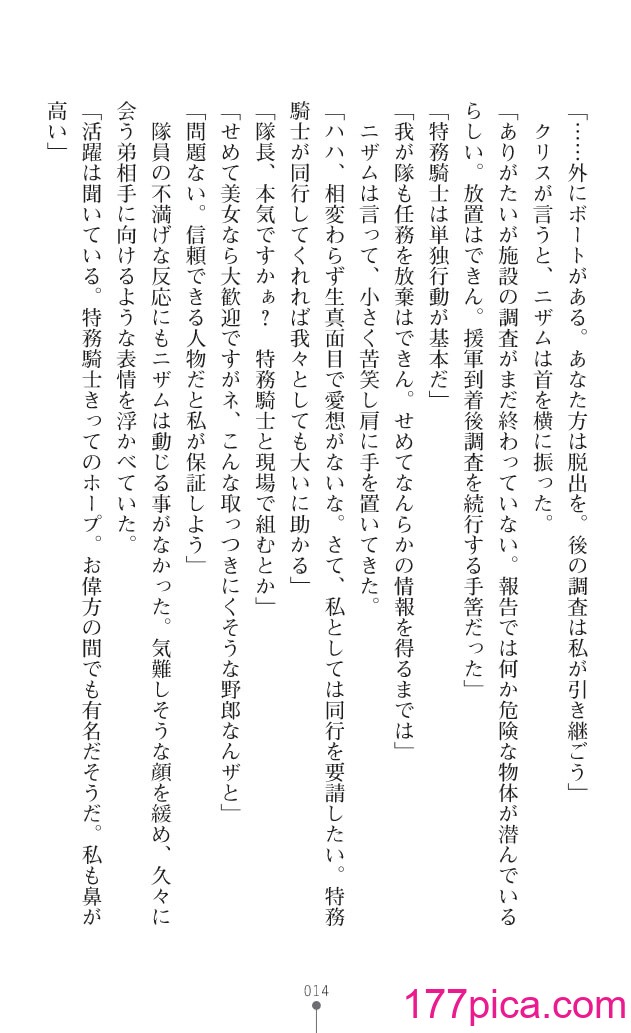 「……外にボートがある。あなた方は脱出を。後の調査は私が引き継ごう」
　クリスが言うと、ニザムは首を横に振った。
「ありがたいが施設の調査がまだ終わっていない。報告では何か危険な物体が潜んでいる
らしい。放置はできん。援軍到着後調査を続行する手筈だった」
「特務騎士は単独行動が基本だ」
「我が隊も任務を放棄はできん。せめてなんらかの情報を得るまでは」
　ニザムは言って、小さく苦笑し肩に手を置いてきた。
「ハハ、相変わらず生真面目で愛想がないな。さて、私としては同行を要請したい。特務
騎士が同行してくれれば我々としても大いに助かる」
「隊長、本気ですかぁ？　特務騎士と現場で組むとか」
「せめて美女なら大歓迎ですがネ、こんな取っつきにくそうな野郎なんザと」
「問題ない。信頼できる人物だと私が保証しよう」
　隊員の不満げな反応にもニザムは動じる事がなかった。気難しそうな顔を緩め、久々に
会う弟相手に向けるような表情を浮かべていた。
「活躍は聞いている。特務騎士きってのホープ。お偉方の間でも有名だそうだ。私も鼻が
高い」
014
177pica.com